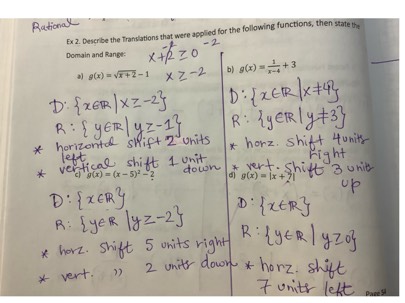 Rational
Ex 2. Describe the Translations that were applied for the following functions, then state the
Domain and Range:
x+2≥0
-2 -2
a) g(x) = √x+2 − 1
x ≥ -2
D: {x∈ℝ | x≥-2}
R: {y∈ℝ | y≥-1}
* horizontal shift 2 units
left
* vertical shift 1 unit
down
b) g(x) = 1/(x−4) + 3
D: {x∈ℝ | x≠4}
R: {y∈ℝ | y≠3}
* horz. shift 4 units
right
* vert. shift 3 units
up
c) g(x) = (x − 5)² − 2
D: {x∈ℝ}
R: {y∈ℝ | y≥-2}
* horz. shift 5 units right
* vert. " 2 units down
d) g(x) = |x + 7|
D: {x∈ℝ}
R: {y∈ℝ | y≥0}
* horz. shift
7 units left